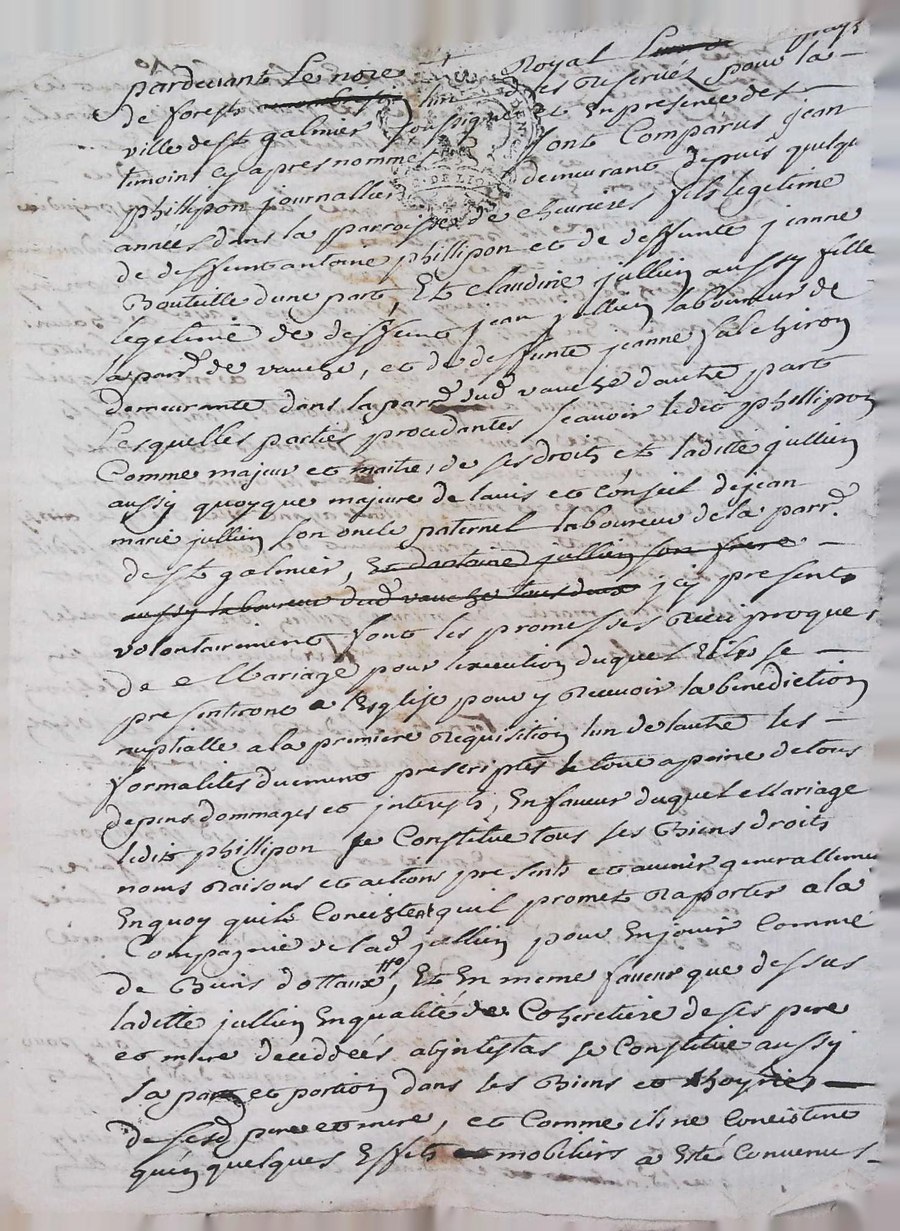 pardevant Le nore Royal pays
de forest soussigné es Reservés pour la
ville de st galmier et En presence des
temoins cy apres nommes sont Comparus jean
phillipon journallier demeurant depuis quelque
années dans la parroisse de chevrieres fils legitime
de deffunt antoine phillipon et de deffunte jeanne
Bouteille dune part, Et claudine jullien aussy fille
legetime de deffunt jean jullien laboureur de
la parr.e de vauche, et de deffunte jeanne
demeurante dans la parr.e dud vauche dautre part
Lesquelles parties procedantes scavoir ledit phillipon
Comme majeur et maitre de ses droits et laditte jullien
aussy quoyque majeure de lavis et conseil de jean
marie jullien son oncle paternel laboureur de la parr.e
de st galmier, Et dantoine jullien son frere
aussy laboureur dud vauche tous deux jcy presents
volontairement font les promesses Reciproques
de Mariage pour lexecution duquel Ils se
presentiront a lEsglise pour y Recevoir la benediction
nuptialle a la premiere Requisition lun de lautre les
formalités duement prescriptes le tout a peine de tous
depens dommages et jnterests, En faveur duquel Mariage
ledit phillipon se Constitue tous ses Biens droits
noms Raisons et actions presents et avenir generallement
En quoy quils Concistent quil promet Raporter a la
Compagnie de lad jullien pour En jouir Comme
de Biens dottaux, Et En meme faveur que dessus
laditte jullien En qualité de Coheretiere de ses pere
et mere deceddées abjntestas se Constitue aussy
sa part et portion dans les Biens et hoyries
de sesd pere et mere, et Comme ils ne Concistent
quén quelques Effets mobiliers a Eté Convenus